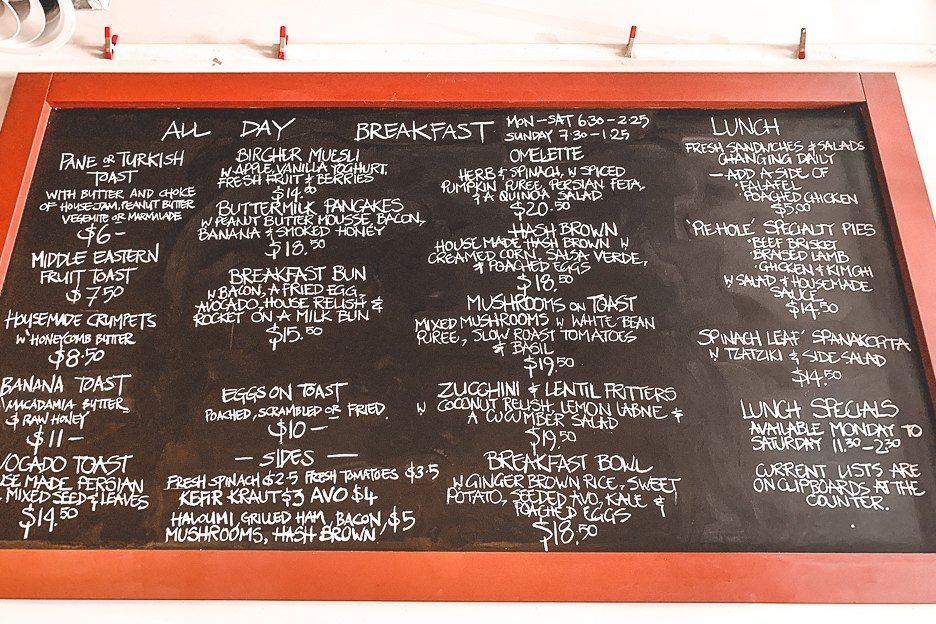 ALL DAY BREAKFAST MON-SAT 6.30-2.25
SUNDAY 7.30-1.25
PANE OR TURKISH
TOAST
WITH BUTTER AND CHOICE
OF HOUSE JAM, PEANUT BUTTER
VEGEMITE OR MARMALADE
$6-
MIDDLE EASTERN
FRUIT TOAST
$7.50
HOUSEMADE CRUMPETS
W HONEYCOMB BUTTER
$8.50
BANANA TOAST
MACADAMIA BUTTER
& RAW HONEY
$11-
VOCADO TOAST
USE MADE PERSIAN
, MIXED SEED & LEAVES
$14.50
BIRCHER MUESLI
W APPLE, VANILLA YOGHURT,
FRESH FRUIT & BERRIES
$14.
BUTTERMILK PANCAKES
W PEANUT BUTTER MOUSSE, BACON,
BANANA & SMOKED HONEY
$18.50
BREAKFAST BUN
W BACON, A FRIED EGG,
AVOCADO, HOUSE RELISH &
ROCKET ON A MILK BUN
$15.50
EGGS ON TOAST
POACHED, SCRAMBLED OR FRIED.
$10-
- SIDES -
FRESH SPINACH $2.5 FRESH TOMATOES $3.5
KEFIR KRAUT $3 AVO $4
HALOUMI, GRILLED HAM, BACON, $5
MUSHROOMS, HASH BROWN
OMELETTE
HERB & SPINACH, W SPICED
PUMPKIN PUREE, PERSIAN FETA,
& A QUINOA SALAD
$20.50
HASH BROWN
HOUSE MADE HASH BROWN W
CREAMED CORN, SALSA VERDE,
& POACHED EGGS
$18.50
MUSHROOMS ON TOAST
MIXED MUSHROOMS W WHITE BEAN
PUREE, SLOW ROAST TOMATOES
& BASIL
$19.50
ZUCCHINI & LENTIL FRITTERS
W COCONUT RELISH, LEMON LABNE &
A CUCUMBER SALAD
$19.50
BREAKFAST BOWL
W GINGER BROWN RICE, SWEET
POTATO, SEEDED AVO, KALE &
POACHED EGGS
$18.50
LUNCH
FRESH SANDWICHES & SALADS
CHANGING DAILY
- ADD A SIDE OF
· FALAFEL
· POACHED CHICKEN
$5.00
'PIEHOLE' SPECIALTY PIES
· BEEF BRISKET
· BRAISED LAMB
· CHICKEN & KIMCHI
W SALAD & HOUSEMADE
SAUCE
$14.50
'SPINACH LEAF' SPANAKOPITA
W TZATZIKI & SIDE SALAD
$14.50
LUNCH SPECIALS
AVAILABLE MONDAY TO
SATURDAY 11.30-2.30
CURRENT LISTS ARE
ON CLIPBOARDS AT THE
COUNTER.